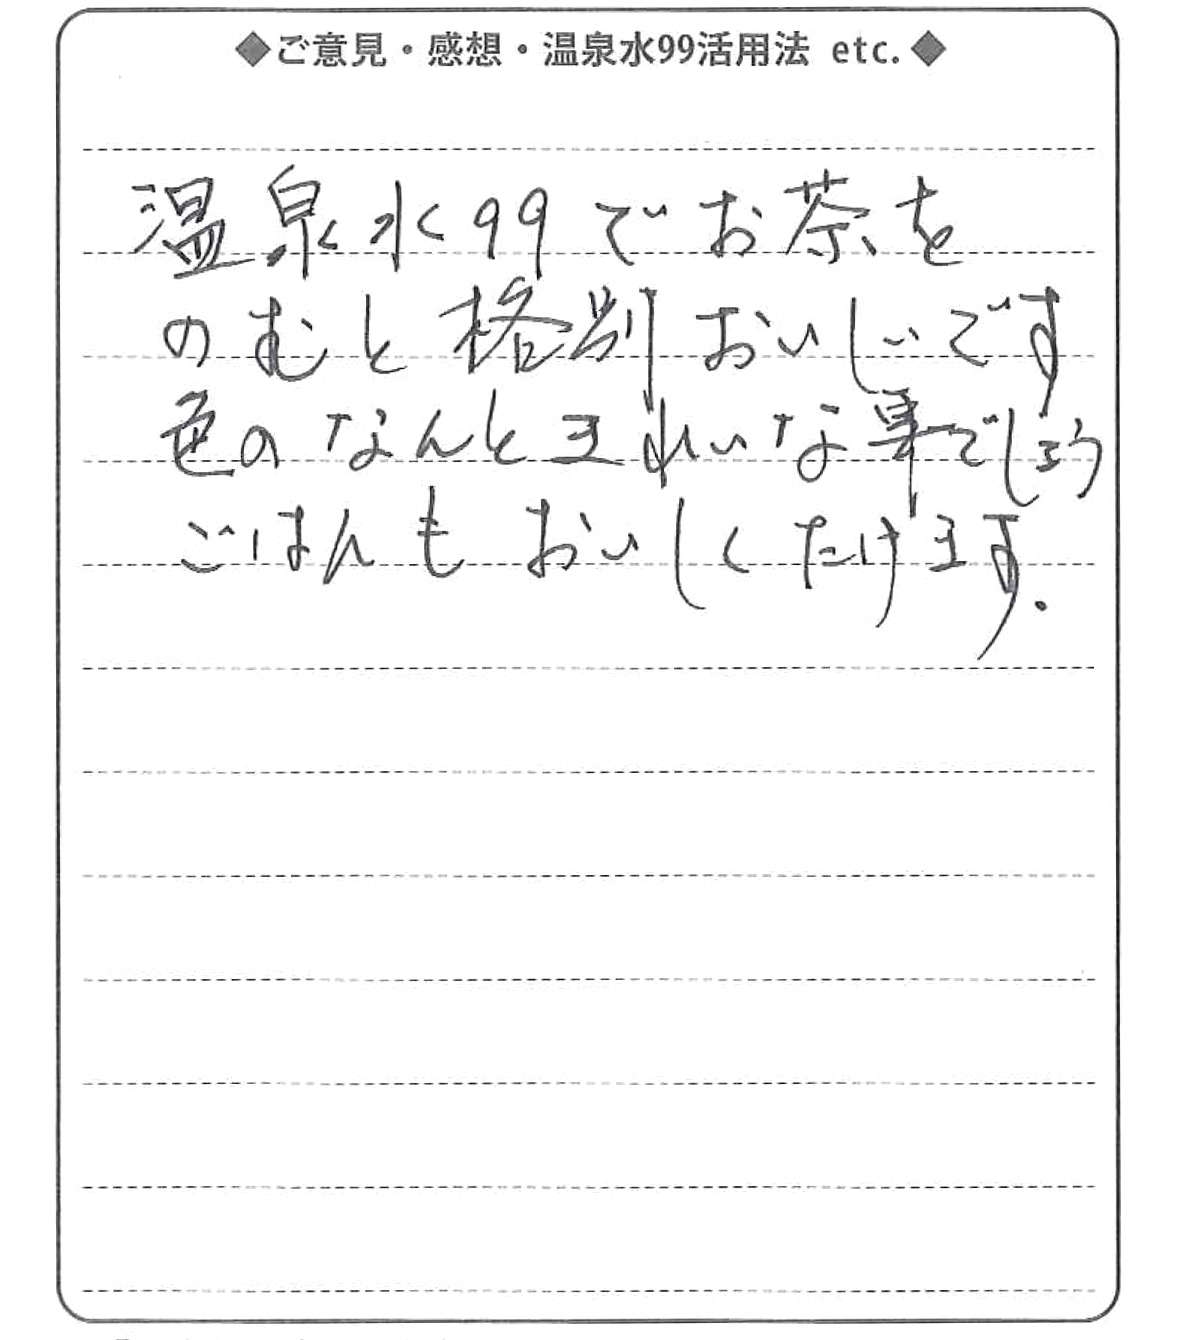 ◆ご意見・感想・温泉水99活用法 etc.◆
温泉水99でお茶を
のむと格別おいしいです
色のなんときれいな事でしょう
ごはんもおいしくたけます.